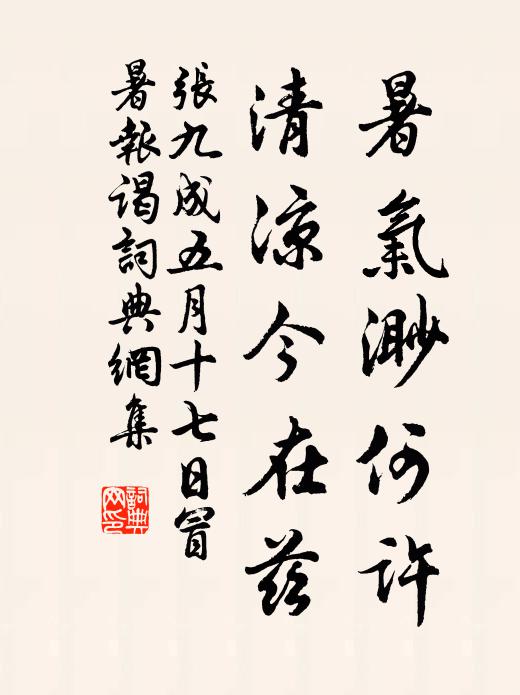 暑氣渺何許
清涼今在茲
張九成五月十七日冒
暑報謁詞典網集
詞典
网印